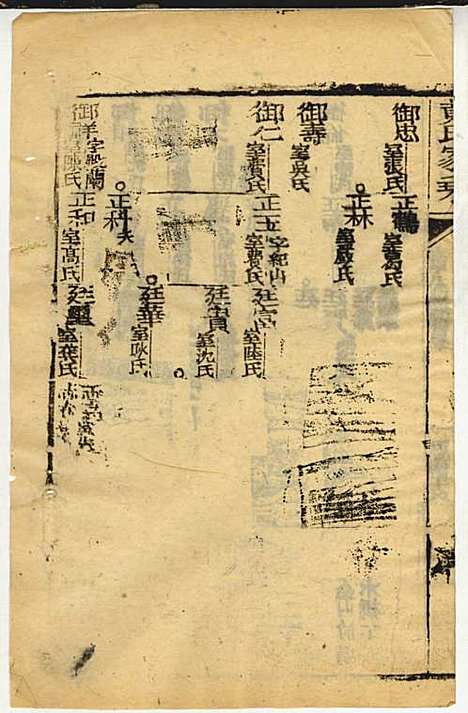 黃氏家乘
御忠 室張氏
正鶴 室葛氏
正林 室嚴氏
御壽 室吳氏
御仁 室黃氏
正玉 字紀山 室費氏
廷富 室陸氏
廷貴 室沈氏
廷華 室耿氏
正科 夭
御祥 字毅蘭 室陳氏
正和 室高氏
廷璽 室蔡氏